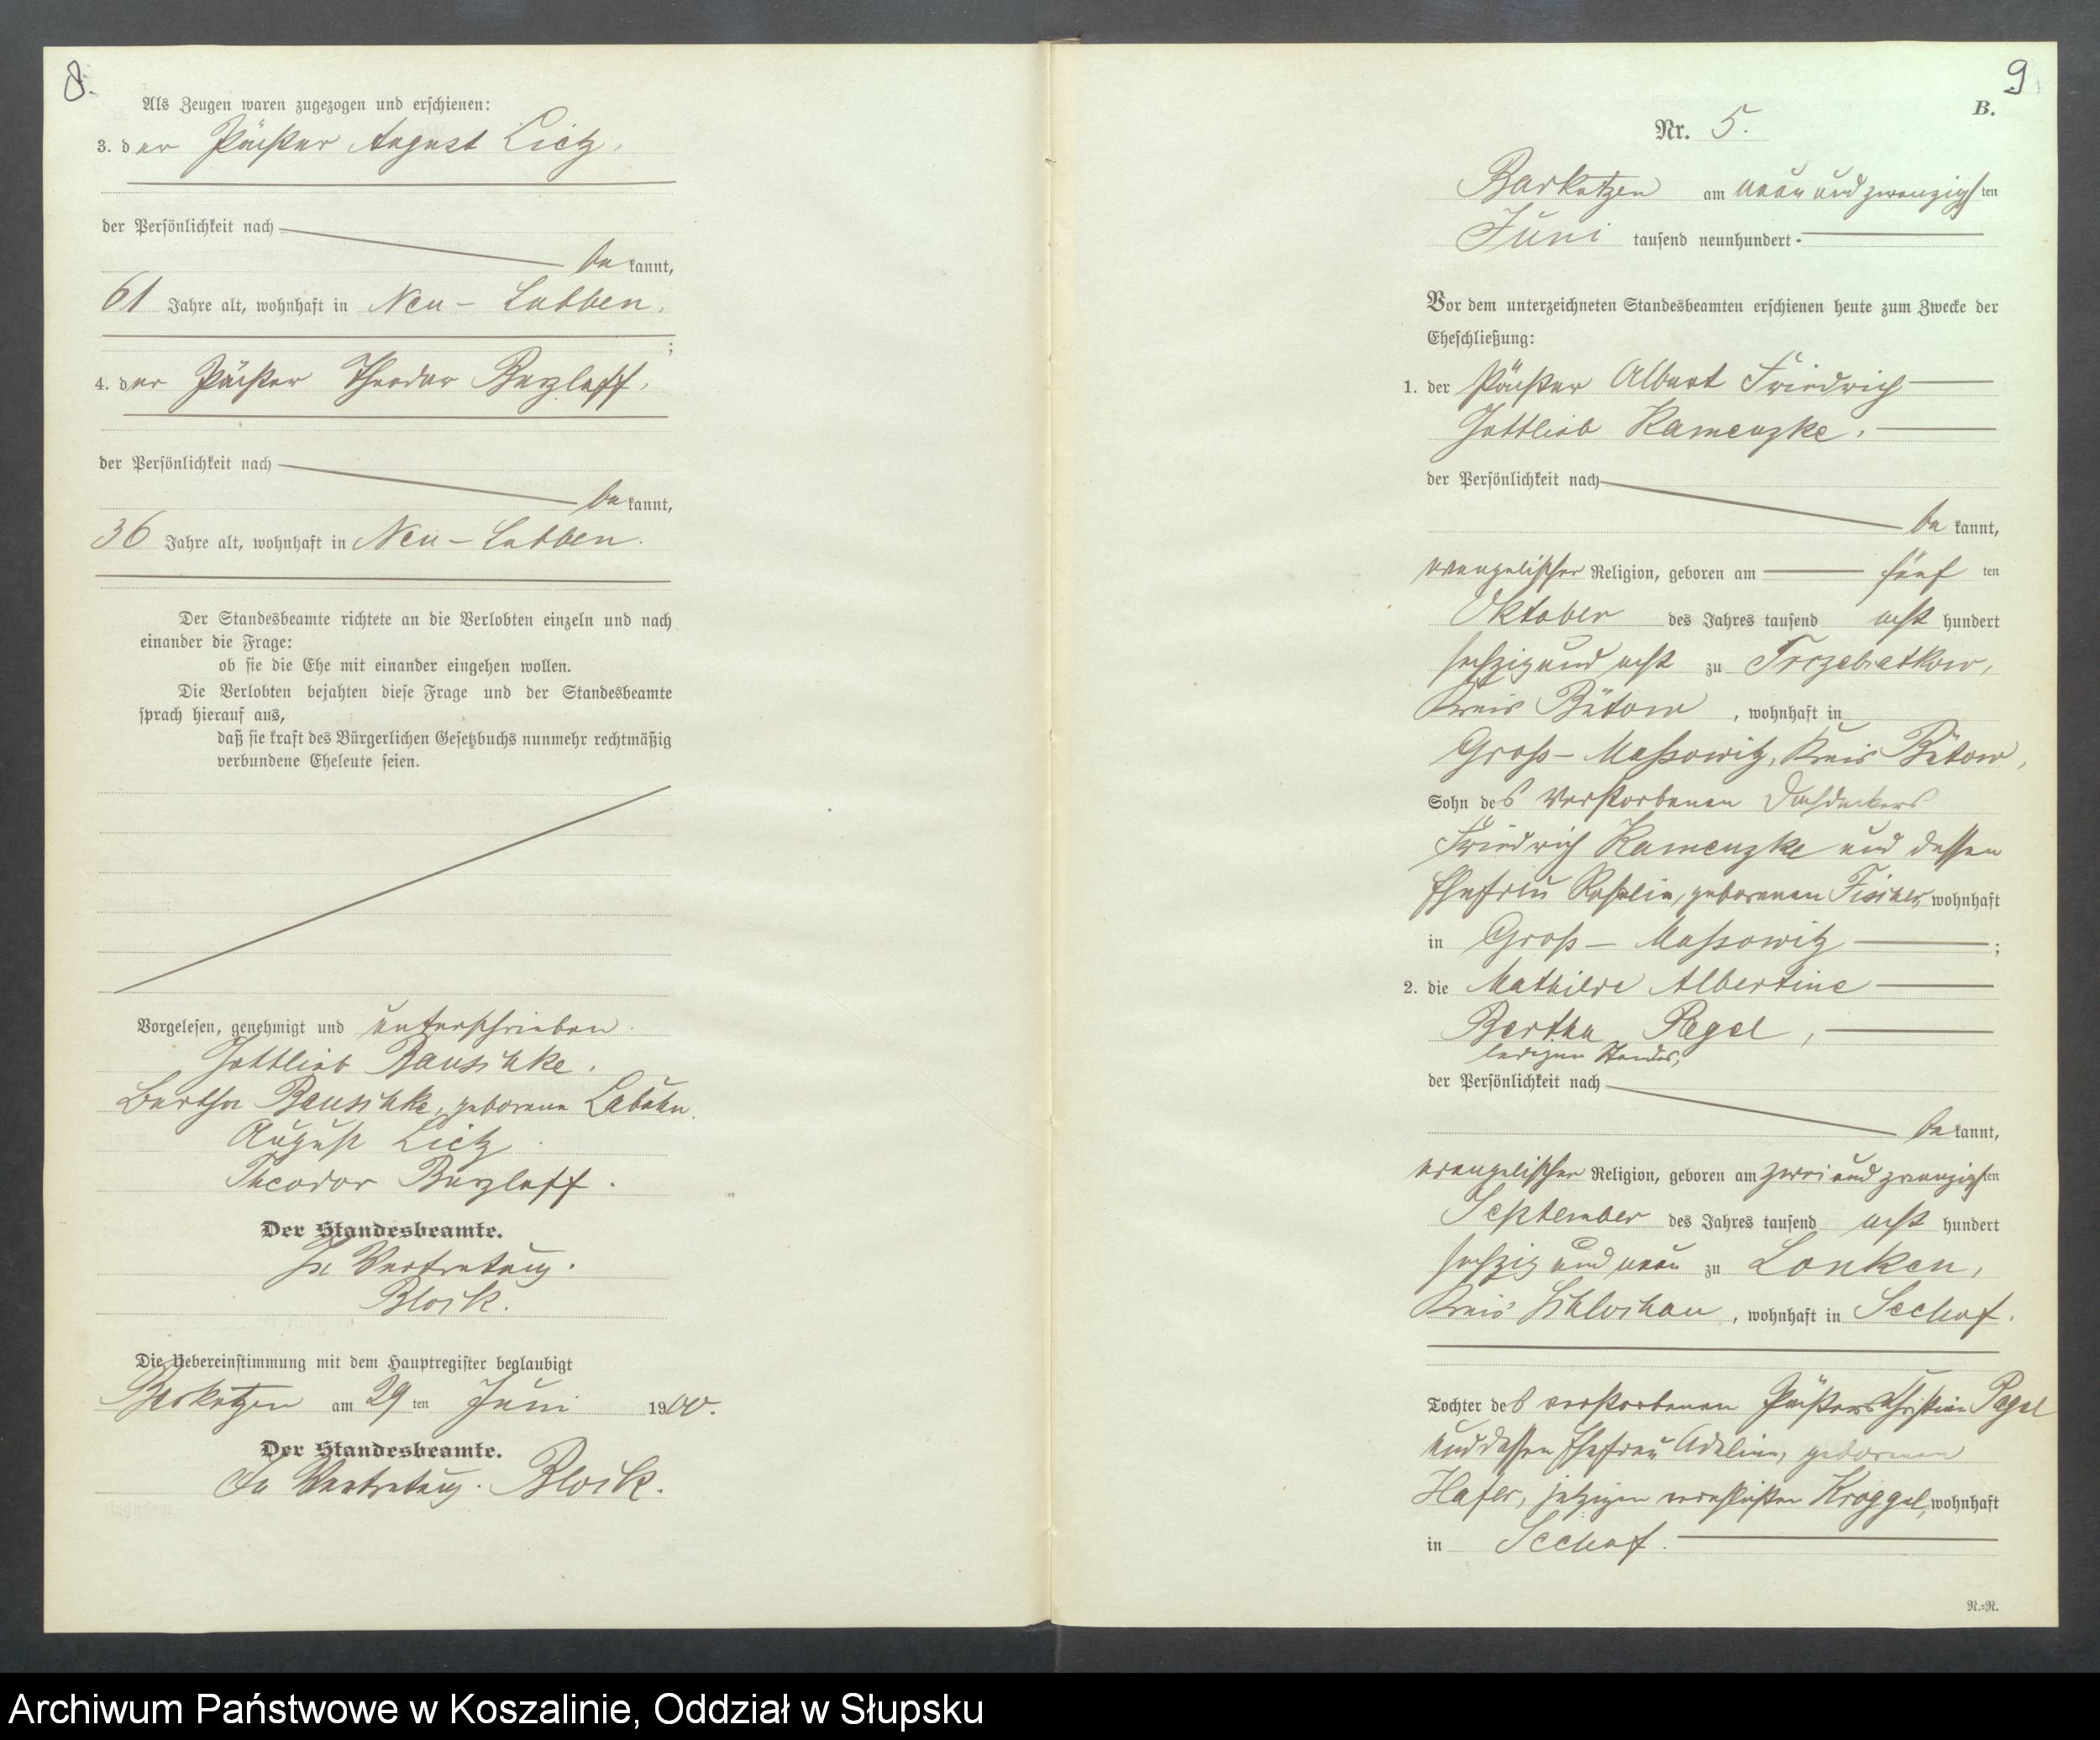 8.
Als Zeugen waren zugezogen und erschienen:
3. der Pächter August Lietz,
der Persönlichkeit nach
be kannt,
61 Jahre alt, wohnhaft in Neu-Lubben,
;
4. der Pächter Theodor Barzlaff,
der Persönlichkeit nach
be kannt,
36 Jahre alt, wohnhaft in Neu-Lubben.
Der Standesbeamte richtete an die Verlobten einzeln und nach
einander die Frage:
ob sie die Ehe mit einander eingehen wollen.
Die Verlobten bejahten diese Frage und der Standesbeamte
sprach hierauf aus,
daß sie kraft des Bürgerlichen Gesetzbuchs nunmehr rechtmäßig
verbundene Eheleute seien.
Vorgelesen, genehmigt und unterschrieben.
Gottlieb Rauschke.
Bertha Rauschke, geborene Labuhn.
August Lietz
Theodor Barzlaff.
Der Standesbeamte.
In Vertretung.
Block.
Die Uebereinstimmung mit dem Hauptregister beglaubigt
Barkotzen am 29 ten Juni 1900.
Der Standesbeamte.
In Vertretung. Block.
9
B.
Nr. 5.
Barkotzen am neun und zwanzigsten
Juni tausend neunhundert
Vor dem unterzeichneten Standesbeamten erschienen heute zum Zwecke der
Eheschließung:
1. der Pächter Albert Friedrich
Gottlieb Kamenzke,
der Persönlichkeit nach
be kannt,
evangelischer Religion, geboren am fünf ten
Oktober des Jahres tausend acht hundert
sechzig und acht zu Trzebiatkow,
Kreis Bütow, wohnhaft in
Groß-Massowitz, Kreis Bütow,
Sohn des verstorbenen Dachdeckers
Friedrich Kamenzke und dessen
Ehefrau Rosalie, geborenen Fischer, wohnhaft
in Groß-Massowitz ;
2. die Mathilde Albertine
Bertha Pagel,
ledigen Standes,
der Persönlichkeit nach
be kannt,
evangelischer Religion, geboren am zwei und zwanzigsten
September des Jahres tausend acht hundert
sechzig und neun zu Lonken,
Kreis Schlochau, wohnhaft in Seehof.
Tochter des verstorbenen Pächters Christian Pagel
und dessen Ehefrau Adeline, geborenen
Hafer, jetzigen verehelichten Kroggel, wohnhaft
in Seehof.
N.=N.
Archiwum Państwowe w Koszalinie, Oddział w Słupsku